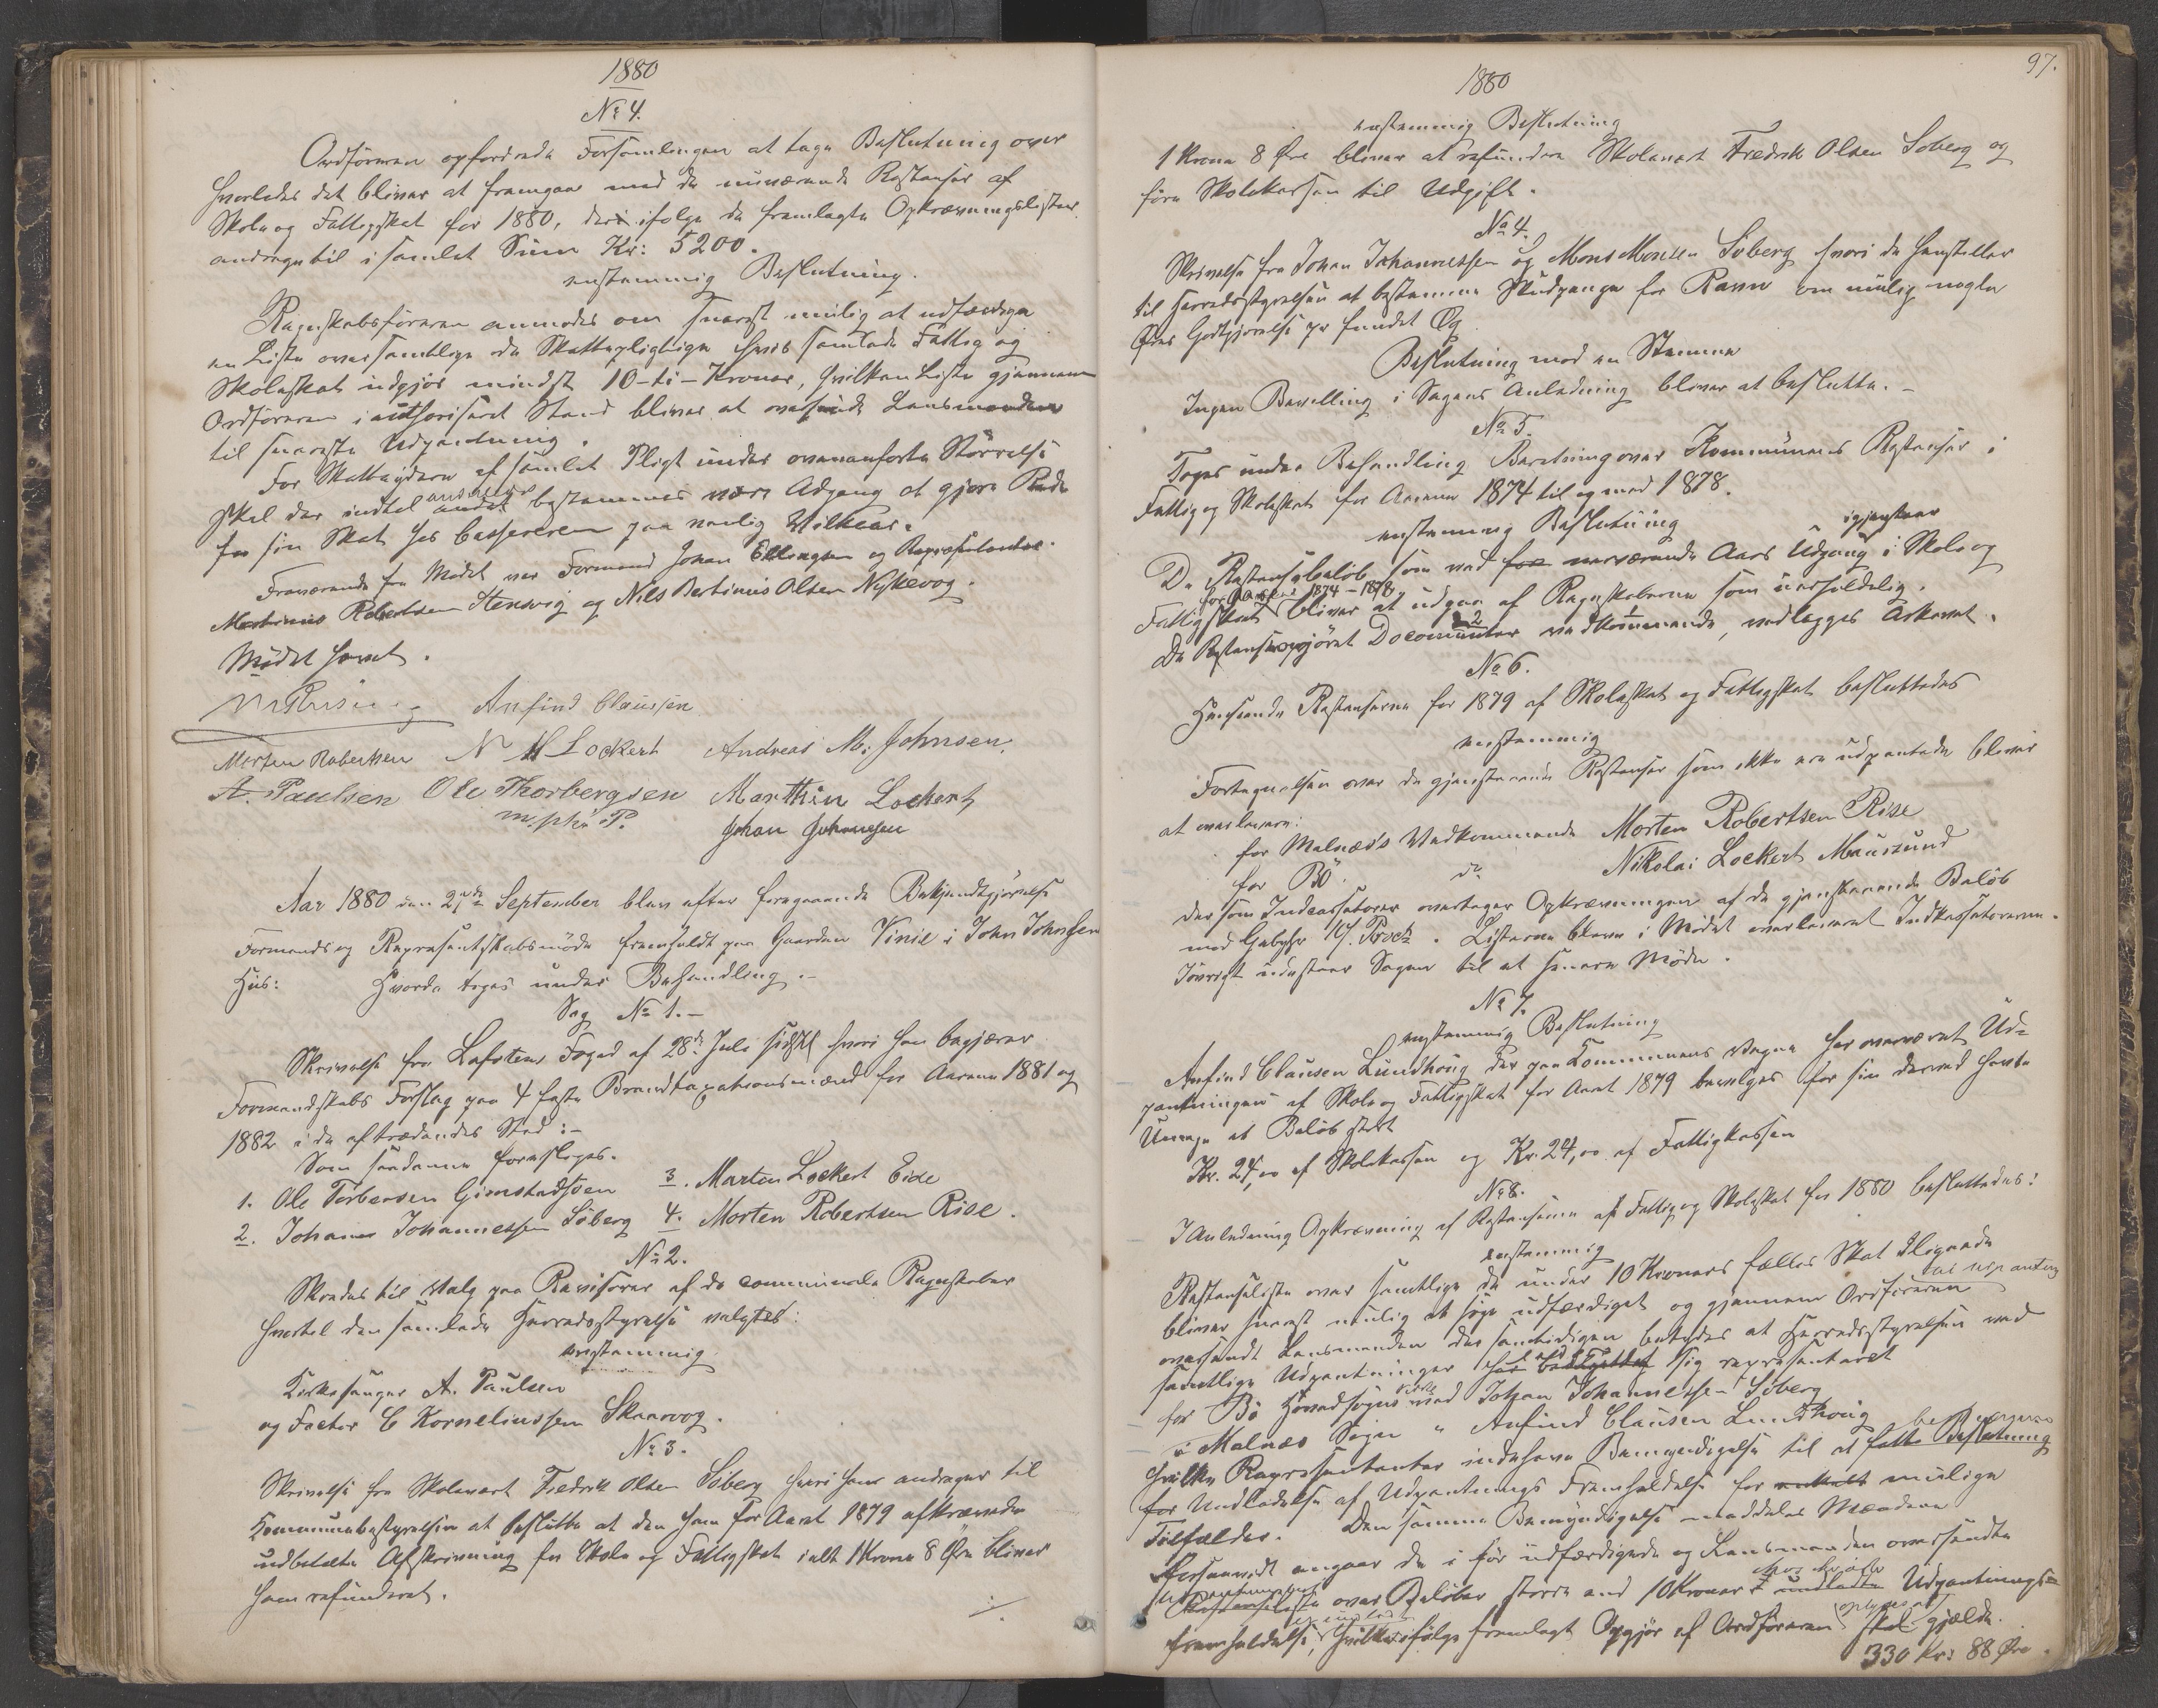 1880
No 4.
Ordføreren opfordrede Forsamlingen at tage Beslutning over
hvorledes det bliver at fremgaa med de nuværende Restanser af
Skole og Fattigskat for 1880, der ifølge de fremlagte Opkrævningslister
andrager til i samlet Sum Kr: 5200.
enstemmig Beslutning.
Regnskabsføreren anmodes om snarest mulig at udfærdige
en Liste over samtlige de Skattepligtige hvis samlede Fattig og
Skoleskat udgjør mindst 10 - ti - Kroner, hvilken Liste gjennem
Ordføreren i authoriseret Stand bliver at oversende Lensmanden
til snareste Udpantning.
For Skatteydere af samlet Pligt under ovenanførte Størrelse
skal der indtil anderledes andet bestemmes være Adgang at gjøre Rede
for sin Skat hos Cassereren paa vanlig Vilkaar.
Fraværende fra Mødet var Formand Johan Ellingsen og Repræsentanter
Martinus Robertsen Steensvig og Nils Bertinius Olsen Nykvog.
Mødet hævet.
M Rusing Anfind Claussen
Morten Robertsen N H Lockert Andreas M. Johnsen.
A. Paulsen Ole Thorbergsen Marthin Lockert
m. p. P. Johan Johannesen
Aar 1880 den 27de September blev efter foregaaende Bekjendtgjørelse
Formands og Repræsentskabsmøde fremholdt paa Gaarden Vinje i John Johnsen
Hus: Hvorda toges under Behandling.-
Sag No 1.-
Skrivelse fra Lofotens Foged af 28de Juli sidstl hvori han begjærer
Formandskabs Forslag paa 4 faste Brandtaxationsmænd for Aarene 1881 og
1882 i de aftrædendes Sted:-
Som saadanne foresloges.
1. Ole Torbersen Gimstadsøen 3. Marten Lockert Eide
2. Johannes Johannessen Søberg 4. Morten Robertsen Risе.
No 2.
Skredes til Valg paa Revisorer af de communale Regnskaber
hvortil den samlede Herredsstyrelse valgtes:
enstemmig
Kirkesanger A. Paulsen
og Factor C Korneliussen Skaarvog.
No 3.
Skrivelse fra Skolevært Fredrik Olsen Søberg hvori han andrager til
Kommunebestyrelsen at beslutte at den ham for Aaret 1879 afkrævede
udbetalte Afskrivning for Skole og Fattigskat ialt 1 Krone 8 Øre bliver
ham refunderet.
./.
97.
1880
enstemmig Beslutning
1 Krone 8 Øre bliver at refundere Skolevært Fredrik Olsen Søberg og
føre Skolekassen til Udgift.
No 4.
Skrivelse fra Johan Johannessen og Mons Monsen Søberg hvori de henstiller
til Herredsstyrelsen at bestemme Skudpenge for Ravn om mulig nogle
Øres Godtgjørelse pr fundet Æg
Beslutning mod en Stemme
Ingen Bevilling i Sagens Anledning bliver at beslutte.-
No 5.
Toges under Behandling Beretning over Kommunens Restanser i
Fattig og Skoleskat for Aarene 1874 til og med 1878.
enstemmig Beslutning
De Restansebeløb som ved for nærværende Aars Udgang igjenstaar i Skole og
Fattigskat for Aarene 1874-1878 bliver at udgaa af Regnskaberne som uerholdelig.
De Restanseopgjøret Documenter 2 vedkommende, vedlægges Arkivet.
No 6.
Henseende Restanserne for 1879 af Skoleskat og Fattigskat besluttedes
enstemmig
Fortegnelsen over de gjenstaaende Restanser som ikke ere udpantede bliver
at overlevere:
for Malnæs's Vedkommende Morten Robertsen Rise
for Bø do Nikolai Lockert Mausund
der som Indcassatorer overtager Opkrævningen af de gjenstaaende Beløb
mod Gebyhr 10/. Proct. Listerne bleve i Mødet overleveret Indkassatorerne.
Iøvrigt udestaar Sagen til et senere Møde.
No 7.
enstemmig Beslutning
Anfind Clausen Lundhoug der paa Kommunens Vegne har overværet Ud-
pantningen af Skole og Fattigskat for Aaret 1879 bevilges for sin derved havte
Umage et Beløb stort
Kr. 24,00 af Skolekassen og Kr. 24,00 af Fattigkassen
No 8.
I Anledning Opkrævning af Restanserne af Fattig og Skoleskat for 1880 besluttedes:
enstemmig
Restanseliste over samtlige de under 10 Kroners fælles Skat Iligande
bliver snarest mulig at søge udfærdiget og gjennem Ordføreren
oversendt Lensmanden der samtidigen betydes at Herredsstyrelsen ved
samtlige Udpantninger har sig repræsenteret
for Bø Hovedsogns ved Johan Johannessen Søberg
i Malnæs Sogn " Anfind Clausen Lundhoug
hvilke Repræsentanter indehave Bemyndigelse til at fatte Beslutning
for Undladelse af Udpantnings Fremholdelse for enkelt mulige
Tilfælder. Den samme Bemyndigelse meddeles Mændene
forsaavidt angaar de i før udfærdigede og Lensmanden oversendte
over Beløber større end 10 Kroner undladte Udpantnings-
fremholdelse, hvilke ifølge fremlagt Opgjør af Ordføreren skal gjælde.
330 Kr: 88 Øre.